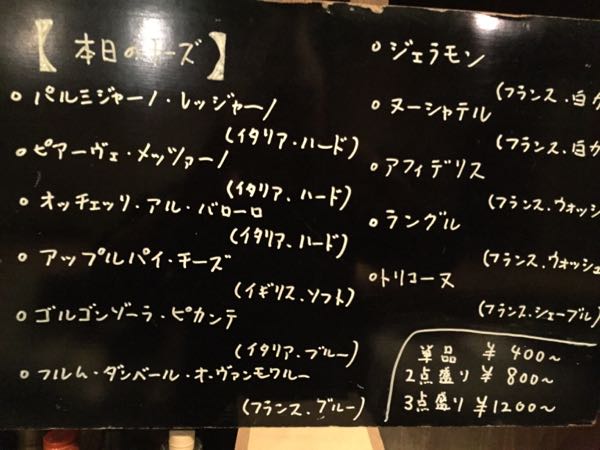 【本日のチーズ】
○ パルミジャーノ・レッジャーノ
(イタリア・ハード)
○ ピアーヴェ・メッツァーノ
(イタリア、ハード)
○ オッチェッリ・アル・バローロ
(イタリア、ハード)
○ アップルパイ・チーズ
(イギリス、ソフト)
○ ゴルゴンゾーラ・ピカンテ
(イタリア、ブルー)
○ フルム・ダンベール・オ・ヴァンモワルー
(フランス、ブルー)
○ ジェラモン
(フランス、白カ
○ ヌーシャテル
(フランス、白カ
○ アフィデリス
(フランス、ウォッシ
○ ラングル
(フランス、ウォッシェ
○ トリコーヌ
(フランス、シェーブル)
単品 ¥400〜
2点盛り ¥800〜
3点盛り ¥1200〜